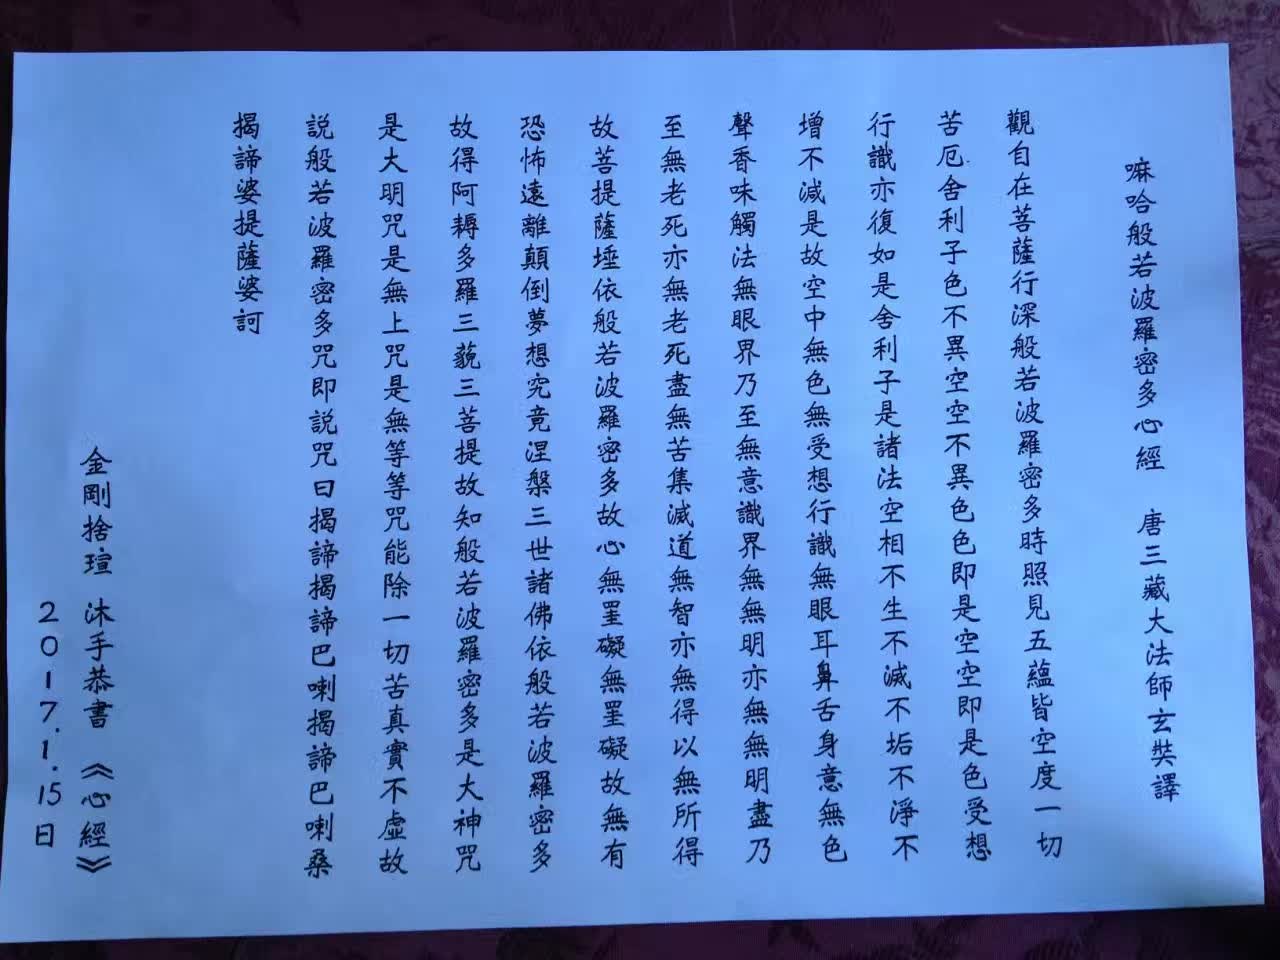 嘛哈般若波羅密多心經 唐三藏大法師玄奘譯
觀自在菩薩行深般若波羅密多時照見五蘊皆空度一切
苦厄舍利子色不異空空不異色色即是空空即是色受想
行識亦復如是舍利子是諸法空相不生不滅不垢不淨不
增不減是故空中無色無受想行識無眼耳鼻舌身意無色
聲香味觸法無眼界乃至無意識界無無明亦無無明盡乃
至無老死亦無老死盡無苦集滅道無智亦無得以無所得
故菩提薩埵依般若波羅密多故心無罣礙無罣礙故無有
恐怖遠離顛倒夢想究竟涅槃三世諸佛依般若波羅密多
故得阿耨多羅三藐三菩提故知般若波羅密多是大神咒
是大明咒是無上咒是無等等咒能除一切苦真實不虛故
説般若波羅密多咒即説咒曰揭諦揭諦巴喇揭諦巴喇桑
揭諦婆提薩婆訶
金剛捨瑄 沐手恭書《心經》
2017.1.15日